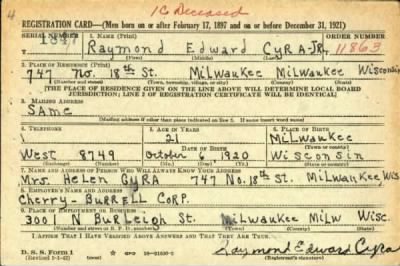 4
1C Deceased
REGISTRATION CARD—(Men born on or after February 17, 1897 and on or before December 31, 1921)
SERIAL NUMBER 1. NAME (Print) ORDER NUMBER
1847 Raymond Edward Cyra Jr. 11863
2. PLACE OF RESIDENCE (Print)
747 No. 18th St. Milwaukee Milwaukee Wisconsin
(Number and street) (Town, township, village, or city) (County) (State)
[THE PLACE OF RESIDENCE GIVEN ON THE LINE ABOVE WILL DETERMINE LOCAL BOARD
JURISDICTION; LINE 2 OF REGISTRATION CERTIFICATE WILL BE IDENTICAL]
3. MAILING ADDRESS
Same
[Mailing address if other than place indicated on line 2. If same insert word same]
4. TELEPHONE 5. AGE IN YEARS 6. PLACE OF BIRTH
21 Milwaukee
DATE OF BIRTH
West 8749 October 6 1920 Wisconsin
(Exchange) (Number) (Mo.) (Day) (Yr.) (State or country)
7. NAME AND ADDRESS OF PERSON WHO WILL ALWAYS KNOW YOUR ADDRESS
Mrs. Helen Cyra 747 No. 18th St. Milwaukee, Wis
8. EMPLOYER'S NAME AND ADDRESS
Cherry-Burrell Corp.
9. PLACE OF EMPLOYMENT OR BUSINESS
3001 N Burleigh St. Milwaukee Milw Wisc.
(Number and street or R. F. D. number) (Town) (County) (State)
I AFFIRM THAT I HAVE VERIFIED ABOVE ANSWERS AND THAT THEY ARE TRUE.
D. S. S. Form 1
GPO
Raymond Edward Cyra